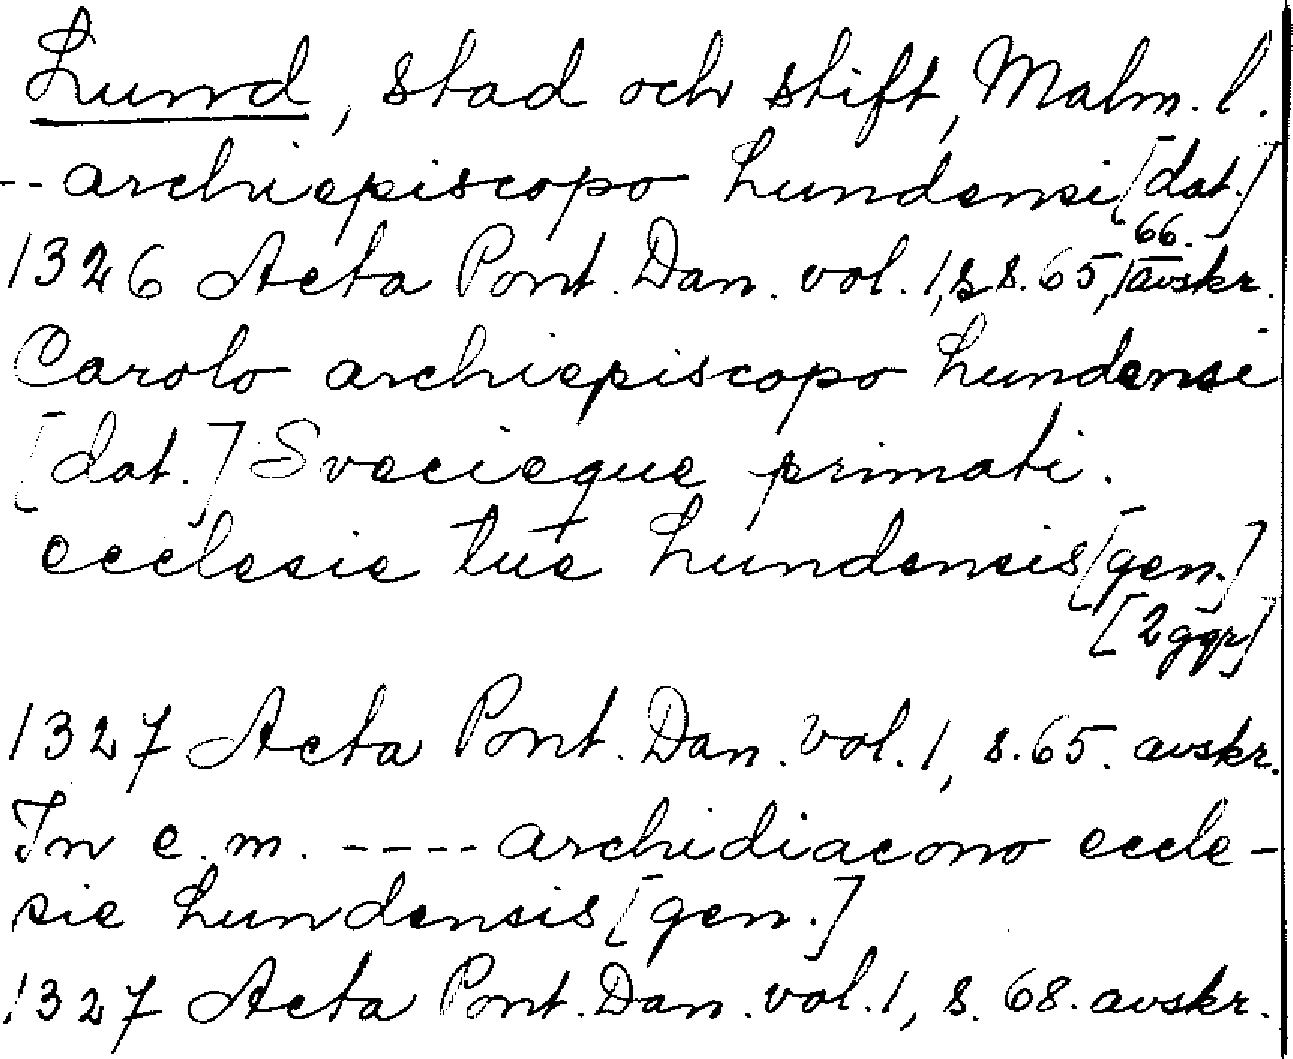 Lund, stad och stift, Malm. l.
-- archiepiscopo Lundensi [dat.]
1326 Acta Pont. Dan. vol. 1, s. 65, 66. avskr.
Carolo archiepiscopo Lundensi
[dat.] Svecieque primati.
ecclesie tue Lundensis [gen.]
[2 ggr]
1327 Acta Pont. Dan. vol. 1, s. 65. avskr.
In e. m. ---- archidiacono eccle-
sie Lundensis [gen.]
1327 Acta Pont. Dan. vol. 1, s. 68. avskr.